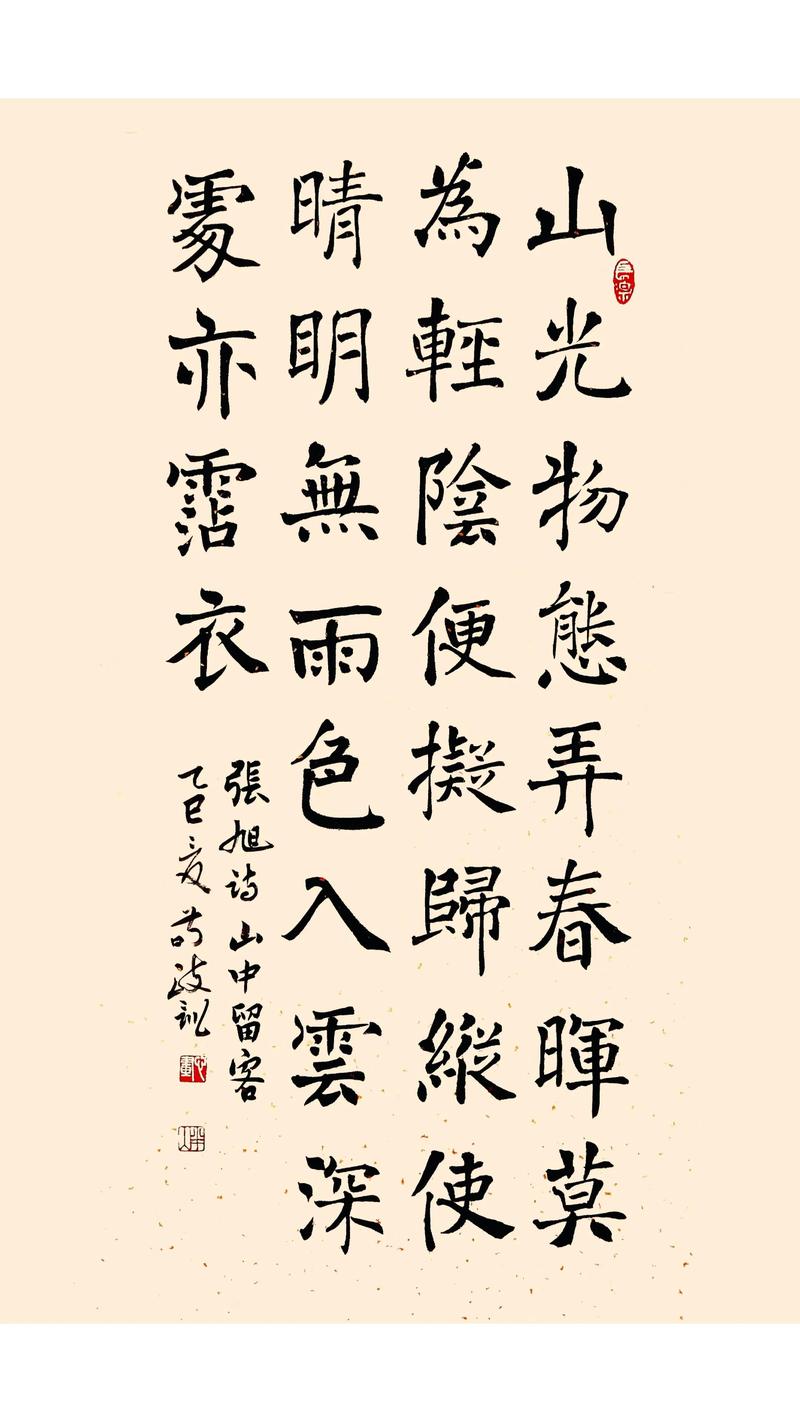 山光物態弄春暉莫
為輕陰便擬歸縱使
晴明無雨色入雲深
處亦霑衣
張旭詩山中留客
乙巳夏